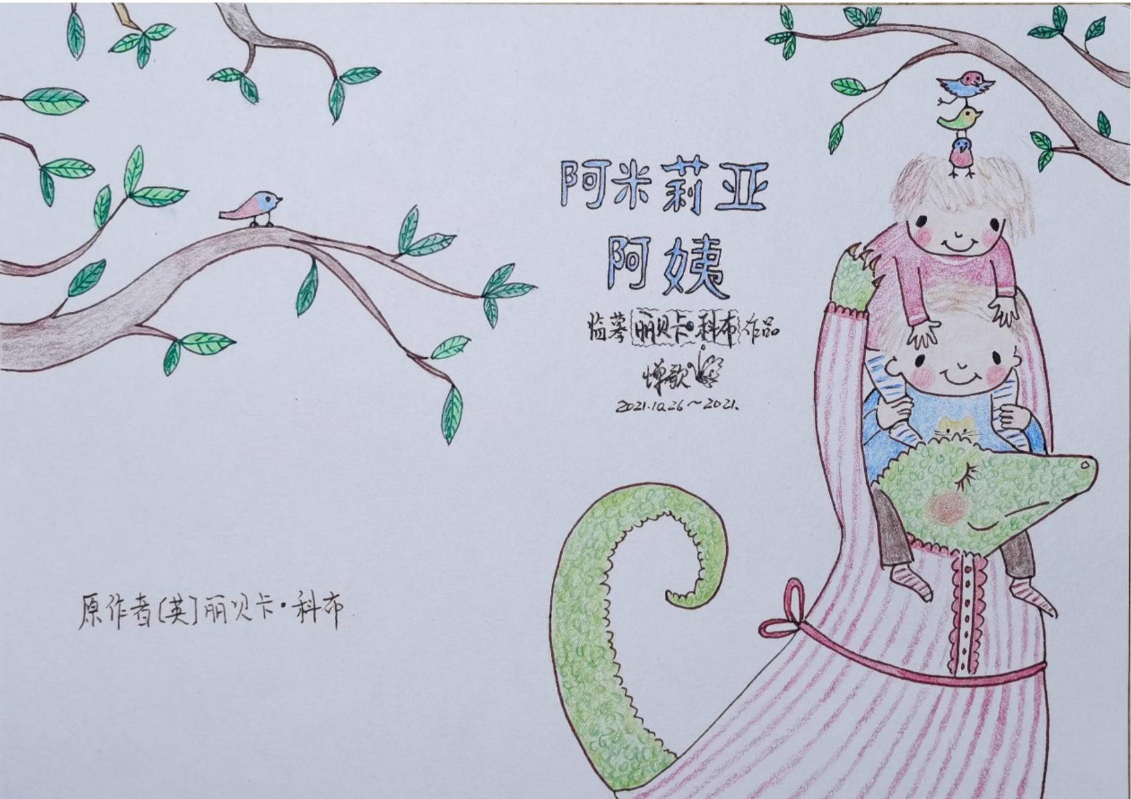 阿米莉亚
阿姨
临摹丽贝卡·科布作品
蝉歌
2021.10.26～2021.
原作者[英]丽贝卡·科布